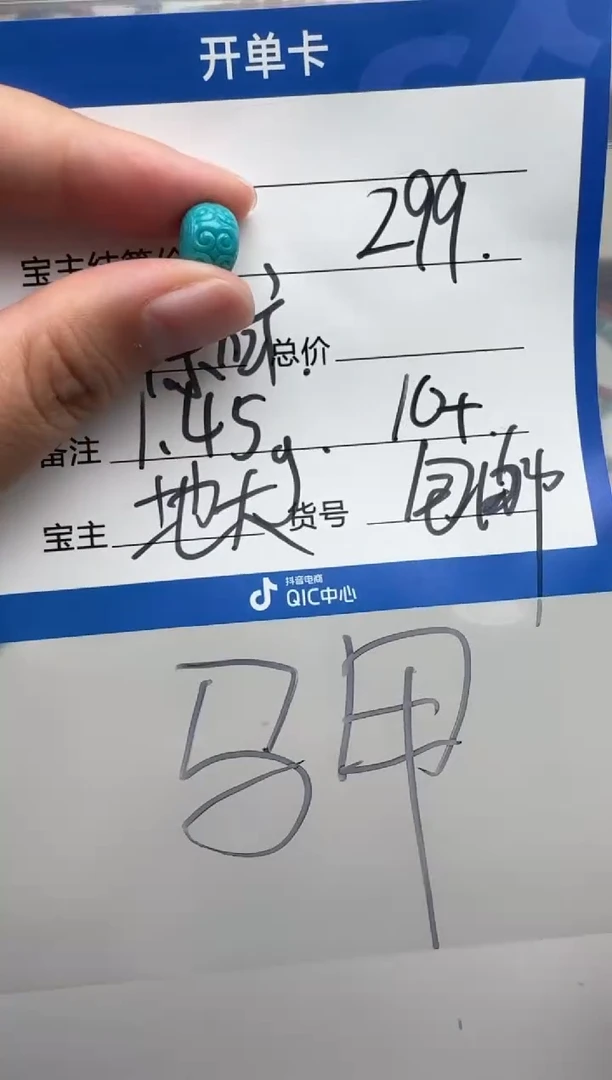 开单卡
299.
宝主结算价
总价
备注 1.45g. 10+.
宝主 地大 货号 包邮
抖音电商
QIC中心
马甲